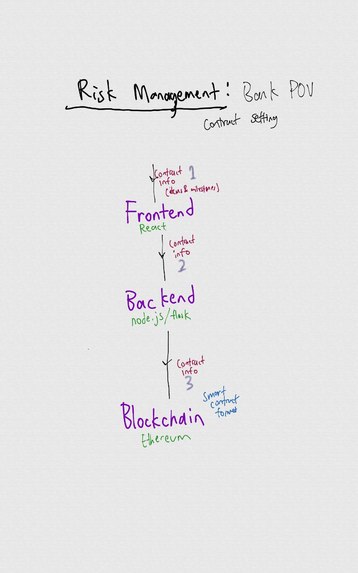 Risk Management: Bank POV
Contract Setting
Contract 1
info
(ideas & milestones)
Frontend
React
Contract
info
2
Backend
node.js/flask
Contract
info
3
Smart
contract
format
Blockchain
Ethereum